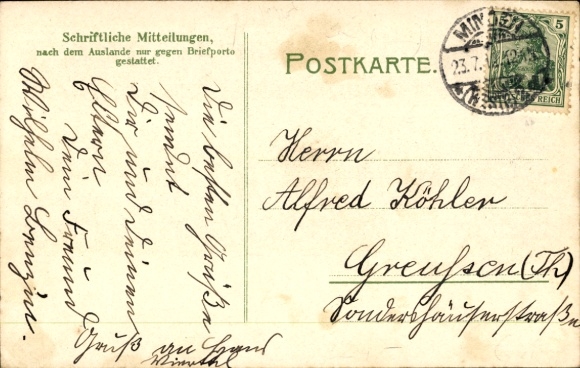 Schriftliche Mitteilungen,
nach dem Auslande nur gegen Briefporto
gestattet.
POSTKARTE.
MINDEN
23.7.
(WESTF.)
5
REICH
Die besten Grüße
sendet
Dir und deinen
Eltern
Dein Freund
Wilhelm
Gruß an Hans
Herrn
Alfred Köhler
Greußen (Th)
Sondershäuserstraße